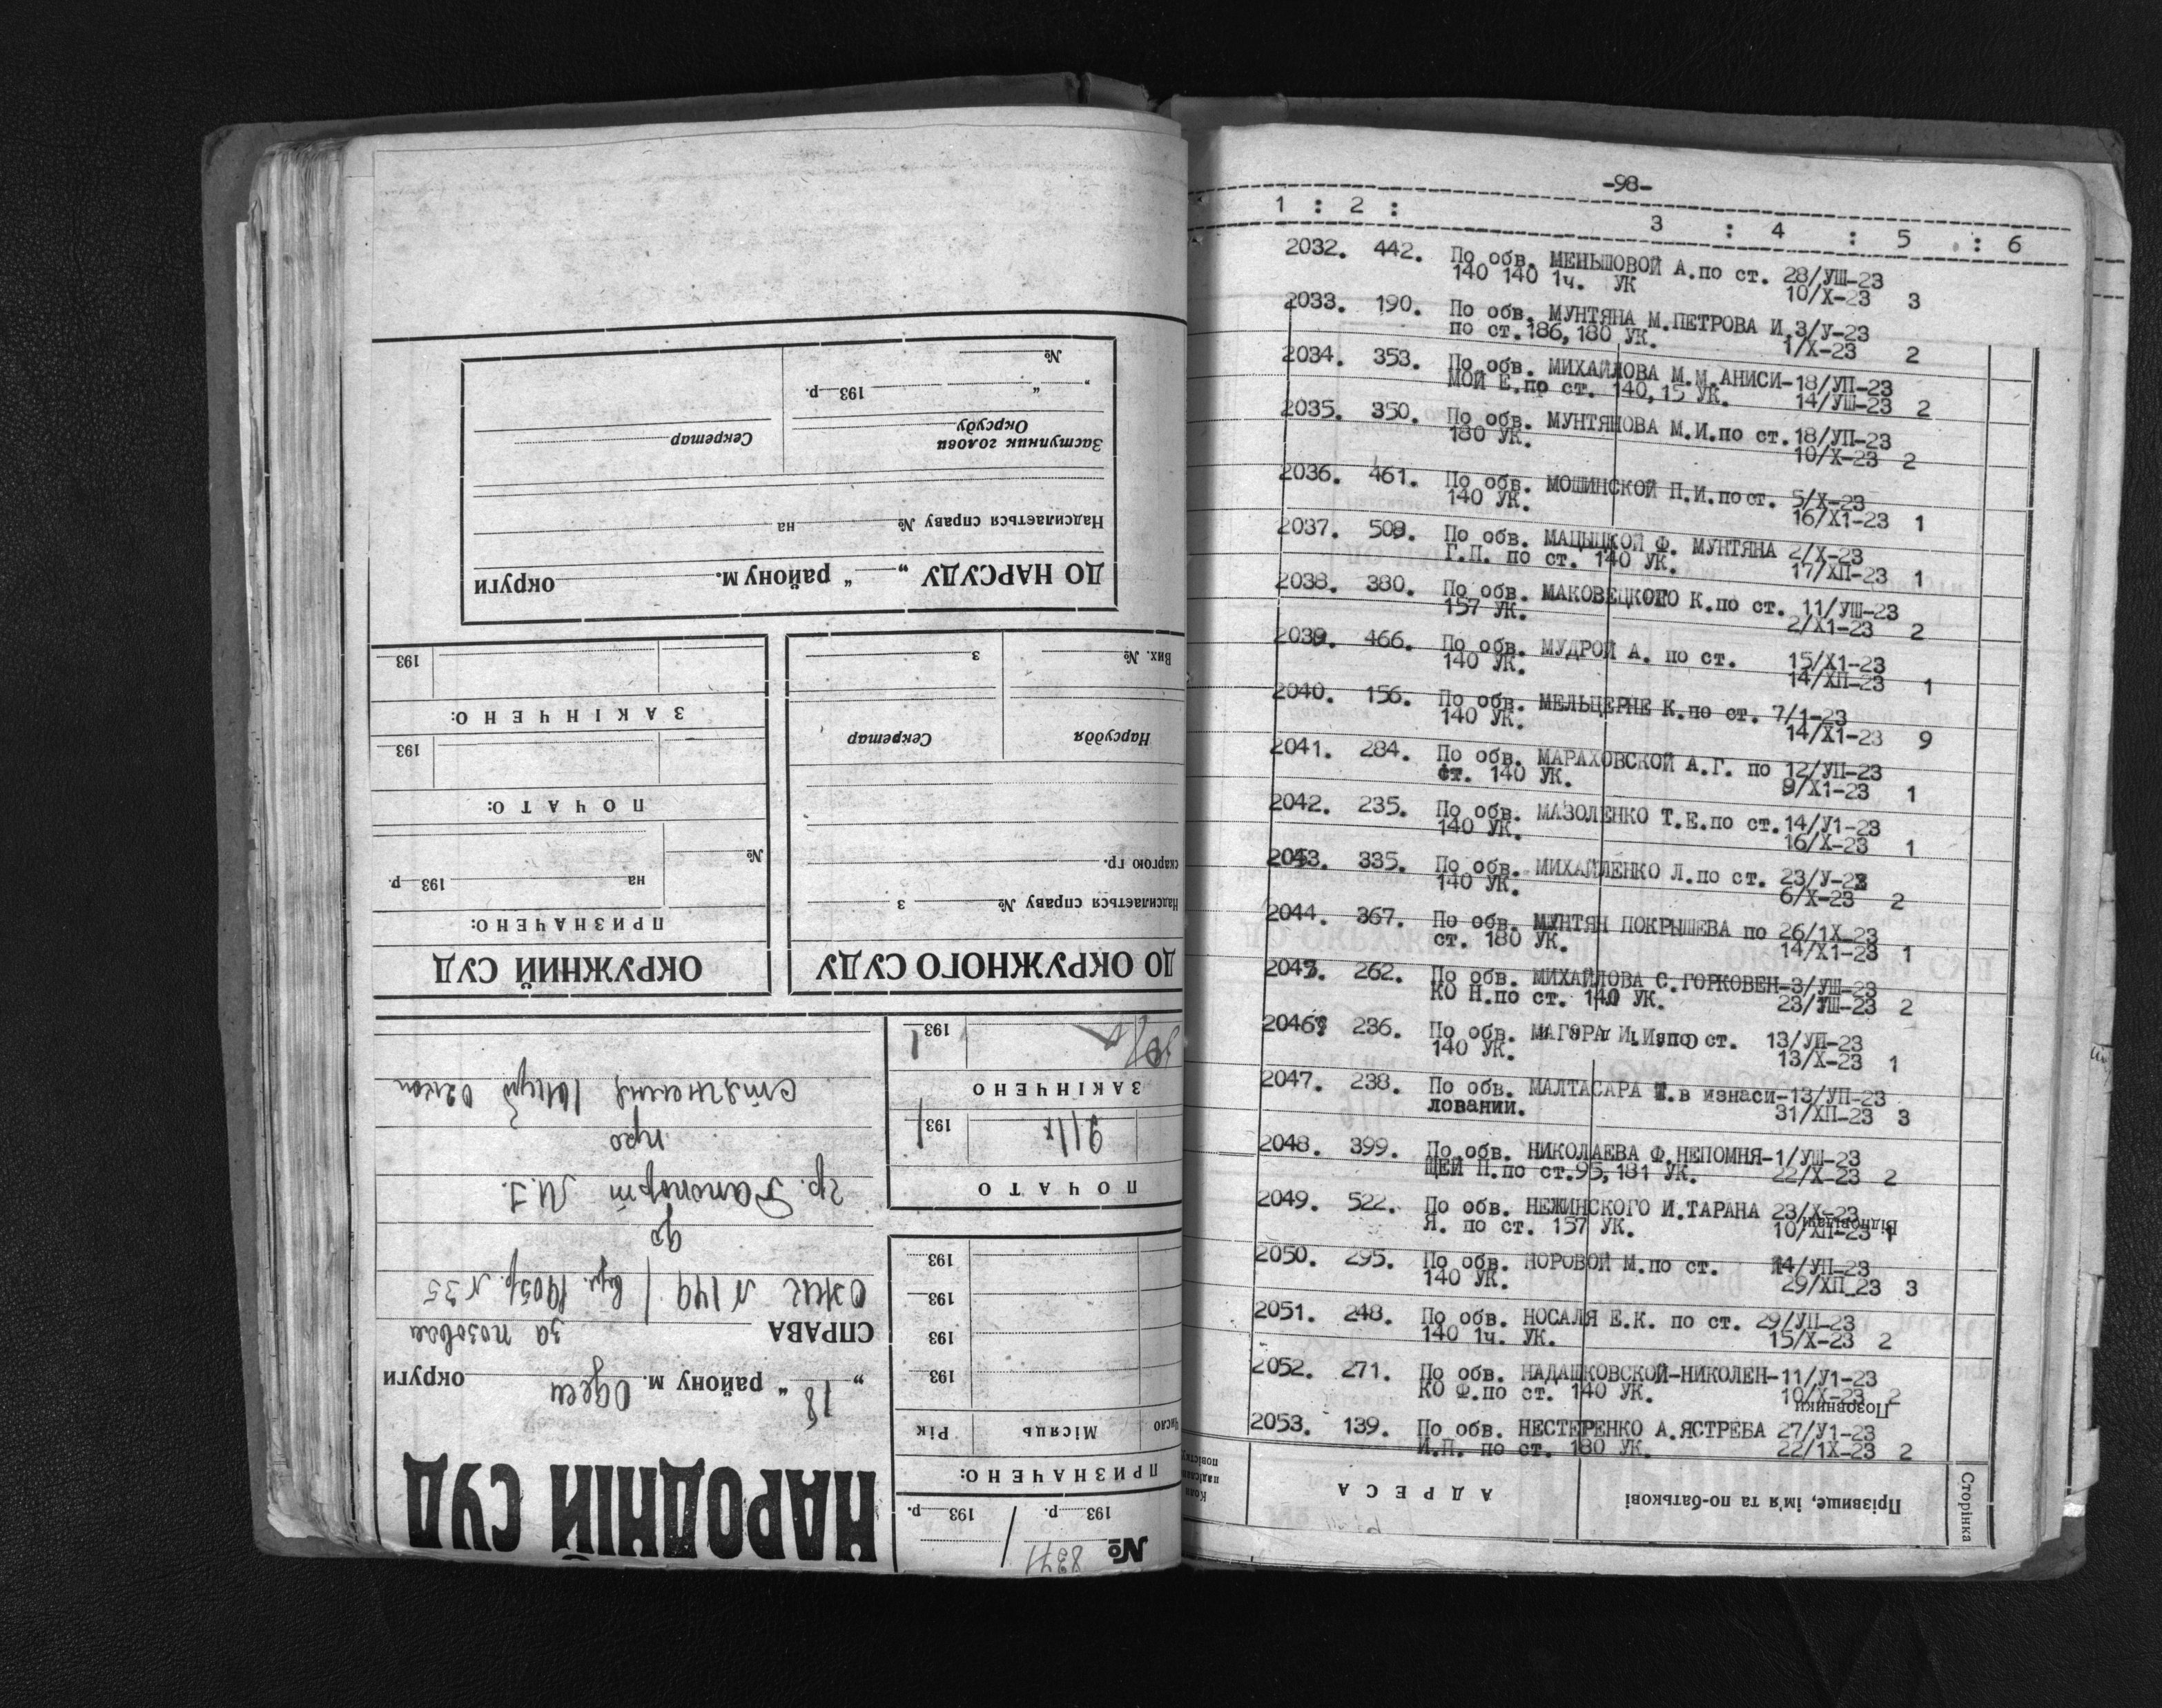 НАРОДНІЙ СУД
„ 18 “ району м. Одеси округи
СПРАВА за позовом
ЖКТ № 149 / вул. 1905 р. № 35
до
гр. Рапопорт М. І.
про
стягнення
№ 8371
193 р. 193 р.
ПРИЗНАЧЕНО:
Число Місяць Рік
193
193
193
193
ПОЧАТО
9 IX 1931
ЗАКІНЧЕНО
193
ОКРУЖНИЙ СУД
ПРИЗНАЧЕНО:
на 193 р.
№
ПОЧАТО:
193
ЗАКІНЧЕНО:
193
ДО ОКРУЖНОГО СУДУ
Надсилається справу № з
скаргою гр.
Нарсуддя Секретар
Вих. № з
ДО НАРСУДУ „ “ району м. округи
Надсилається справу № на
Заступник голови Окрсуду Секретар
„ “ 193 р.
№
-98-
1 : 2 : 3 : 4 : 5 : 6
2032. 442. По обв. МЕНЬШОВОЙ А.по ст. 28/УШ-23
140 140 1ч. УК 10/Х-23 3
2033. 190. По обв. МУНТЯНА М.ПЕТРОВА И 3/У-23
по ст.186,180 УК. 1/Х-23 2
2034. 353. По обв. МИХАЙЛОВА М.М.АНИСИ-18/УП-23
МОЙ Е.по ст. 140,15 УК. 14/УШ-23 2
2035. 350. По обв. МУНТЯНОВА М.И.по ст.18/УП-23
180 УК. 10/Х-23 2
2036. 461. По обв. МОШИНСКОЙ П.И.по ст. 5/Х-23
140 УК. 16/Х1-23 1
2037. 509. По обв. МАЦЫЦКОЙ Ф. МУНТЯНА 2/Х-23
Г.П. по ст. 140 УК. 17/ХП-23 1
2038. 380. По обв. МАКОВЕЦКОГО К.по ст. 11/УШ-23
157 УК. 2/Х1-23 2
2039. 466. По обв. МУДРОЙ А. по ст. 15/Х1-23
140 УК. 14/ХП-23 1
2040. 156. По обв. МЕЛЬЦЕРНЕ К.по ст. 7/1-23
140 УК. 14/Х1-23 9
2041. 284. По обв. МАРАХОВСКОЙ А.Г. по 12/УП-23
ст. 140 УК. 9/Х1-23 1
2042. 235. По обв. МАЗОЛЕНКО Т.Е.по ст.14/У1-23
140 УК. 16/Х-23 1
2043. 335. По обв. МИХАЙЛЕНКО Л.по ст. 23/У-23
140 УК. 6/Х-23 2
2044. 367. По обв. МУНТЯН ПОКРЫШЕВА по 26/1Х_23
ст. 180 УК. 14/Х1-23 1
2045. 262. По обв. МИХАЙЛОВА С.ГОРКОВЕН-3/УШ-23
КО Н.по ст. 140 УК. 23/УШ-23 2
2046. 236. По обв. по ст. 13/УП-23
140 УК. 13/Х-23 1
2047. 238. По обв. МАЛТАСАРА в изнаси-13/УП-23
ловании. 31/ХП-23 3
2048. 399. По обв. НИКОЛАЕВА Ф.НЕПОМНЯ-1/УШ-23
ЩЕЙ П.по ст.95,181 УК. 22/Х-23 2
2049. 522. По обв. НЕЖИНСКОГО И.ТАРАНА 23/Х-23
Я. по ст. 157 УК. 10/ХП-23 1
Відповідачі
2050. 295. По обв. НОРОВОЙ М.по ст. 14/УП-23
140 УК. 29/ХП_23 3
2051. 248. По обв. НОСАЛЯ Е.К. по ст. 29/УП-23
140 1ч. УК. 15/Х-23 2
2052. 271. По обв. НАДАШКОВСКОЙ-НИКОЛЕН-11/У1-23
КО Ф.по ст. 140 УК. 10/Х-23 2
Позовники
2053. 139. По обв. НЕСТЕРЕНКО А.ЯСТРЕБА 27/У1-23
И.П. по ст. 180 УК. 22/1Х-23 2
Сторінка
Прізвище, ім'я та по-батькові
АДРЕСА
Коли надіслано повістку